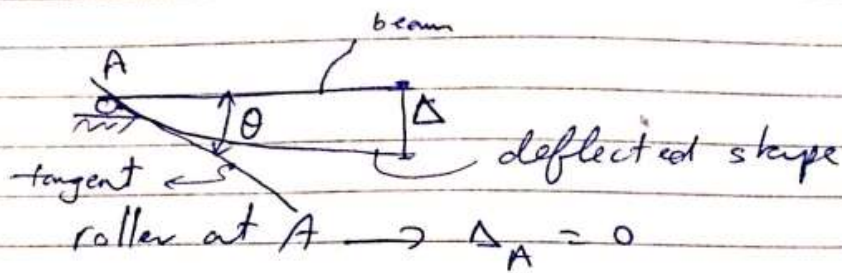 beam
A
θ
Δ
deflected shape
tangent
roller at A → Δ_A = 0